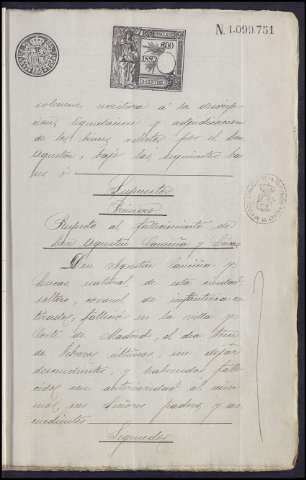 N. 1.099.751
600
1882
á la descrip-
cion, liquidacion y adjudicacion
de los bienes relictos por el Don
Agustin, bajo las siguientes ba-
ses:
Supuestos
Primero
Respecto al fallecimiento de
Don Agustin y
Don Agustin y
natural de esta ciudad
soltero, coronel de infanteria re-
tirado, falleció en la villa y
Corte de Madrid, el dia trece
de febrero ultimo, sin dejar
descendientes, y habiendo falle-
cido con anterioridad al mis-
mo, sus Señores padres, y as-
cendientes.
Segundo